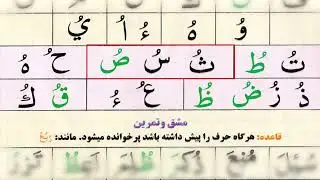 وُ هُ ءُ اُ يُ
تُ طُ ثُ سُ صُ حُ هُ
ذُ زُ ضُ ظُ عُ ءُ قُ كُ
مشق و تمرین
قاعده: هرگاه حرف را پیش داشته باشد پر خوانده میشود. مانند: رُبُعُ